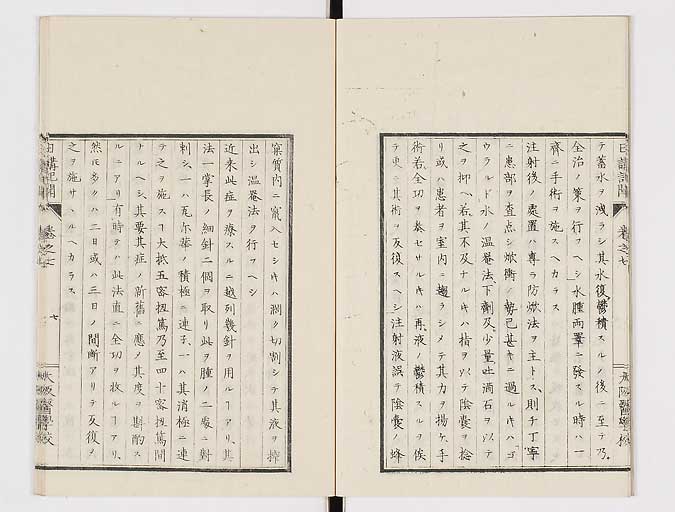 テ蓄水ヲ洩ラシ其水復鬱積スルノ後ニ至テ乃
全治ノ策ヲ行フヘシ水腫両睾ニ發スル時ハ一
齊ニ手術ヲ施スヘカラス
注射後ノ處置ハ專ラ防焮法ヲ主トス、則チ丁寧
ニ患部ヲ査点シ焮衝ノ勢已甚キニ過ルキハゴ
ウラルド水ノ温罨法、下劑及少量吐酒石ヲ以テ
之ヲ抑ヘ若其不及ナルキハ指ヲ以テ陰囊ヲ捻
リ或ハ患者ヲ室内ニ趨ラシメテ其力ヲ揚ケ手
術若全功ヲ奏セサルキハ再液ノ鬱積スルヲ俟
テ更ニ其術ヲ反復スヘシ注射液誤テ陰囊ノ蜂
窠質内ニ竄入セシキハ濶ク切割シテ其液ヲ搾
出シ温罨法ヲ行フヘシ
近来此症ヲ療スルニ越列幾針ヲ用ルヿアリ、其
法一掌長ノ細針二個ヲ取リ此ヲ腫ノ二處ニ對
刺シ、一ハ瓦尓華ノ積極ニ連子、一ハ其消極ニ連
テ之ヲ施スヿ大抵五密扭篤乃至四十密扭篤間
ナルヘシ、其要其症ノ新舊ニ應ノ其度ヲ斟酌ス
ルニアリ有時ヲハ此法直ニ全功ヲ收ルヿアリ、
然𪜈多クハ二日或ハ三日ノ間断アリテ反復ノ
之ヲ施サヽルヘカラス
日講記聞
卷之七
七
大阪醫學校